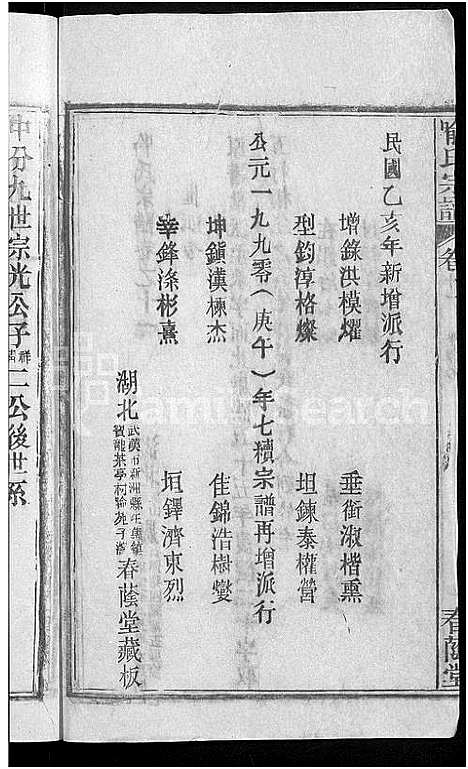 喻氏宗譜 卷
春蔭堂
民國乙亥年新增派行
增錄洪模燿 垂銜淑楷熏
型鈞淳格燦 坦鍊泰權營
公元一九九零(庚午)年七續宗譜再增派行
坤鎮漢楝杰 佳錦浩樹燮
幸鋒滌彬熹 垣鐸濟東烈
湖北 武漢市新洲縣 春蔭堂藏板
中分九世宗光公子 二公後世系
FamilySearch